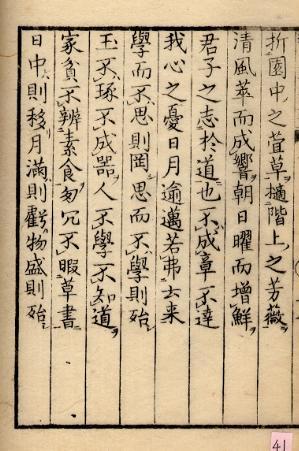 折園中之萱草擿階上之芳薇
清風萃而成響朝日曜而增鮮
君子之志於道也不成章不達
我心之憂日月逾邁若弗云来
學而不思則罔思而不學則殆
玉不琢不成器人不學不知道
家貧不辨素食匆冗不暇草書
日中則移月滿則虧物盛則殆
41